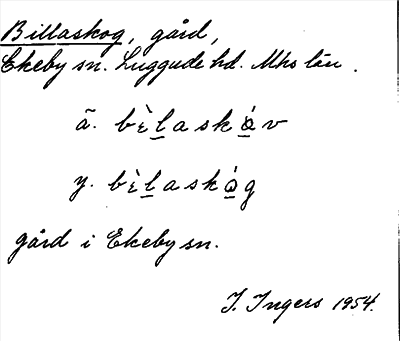 Billaskog, gård,
Ekeby sn. Luggude hd. Mhs län.
ä. bὲl̲askǫ́v
y. bὲl̲askǫ́g
gård i Ekeby sn.
I. Ingers 1954.